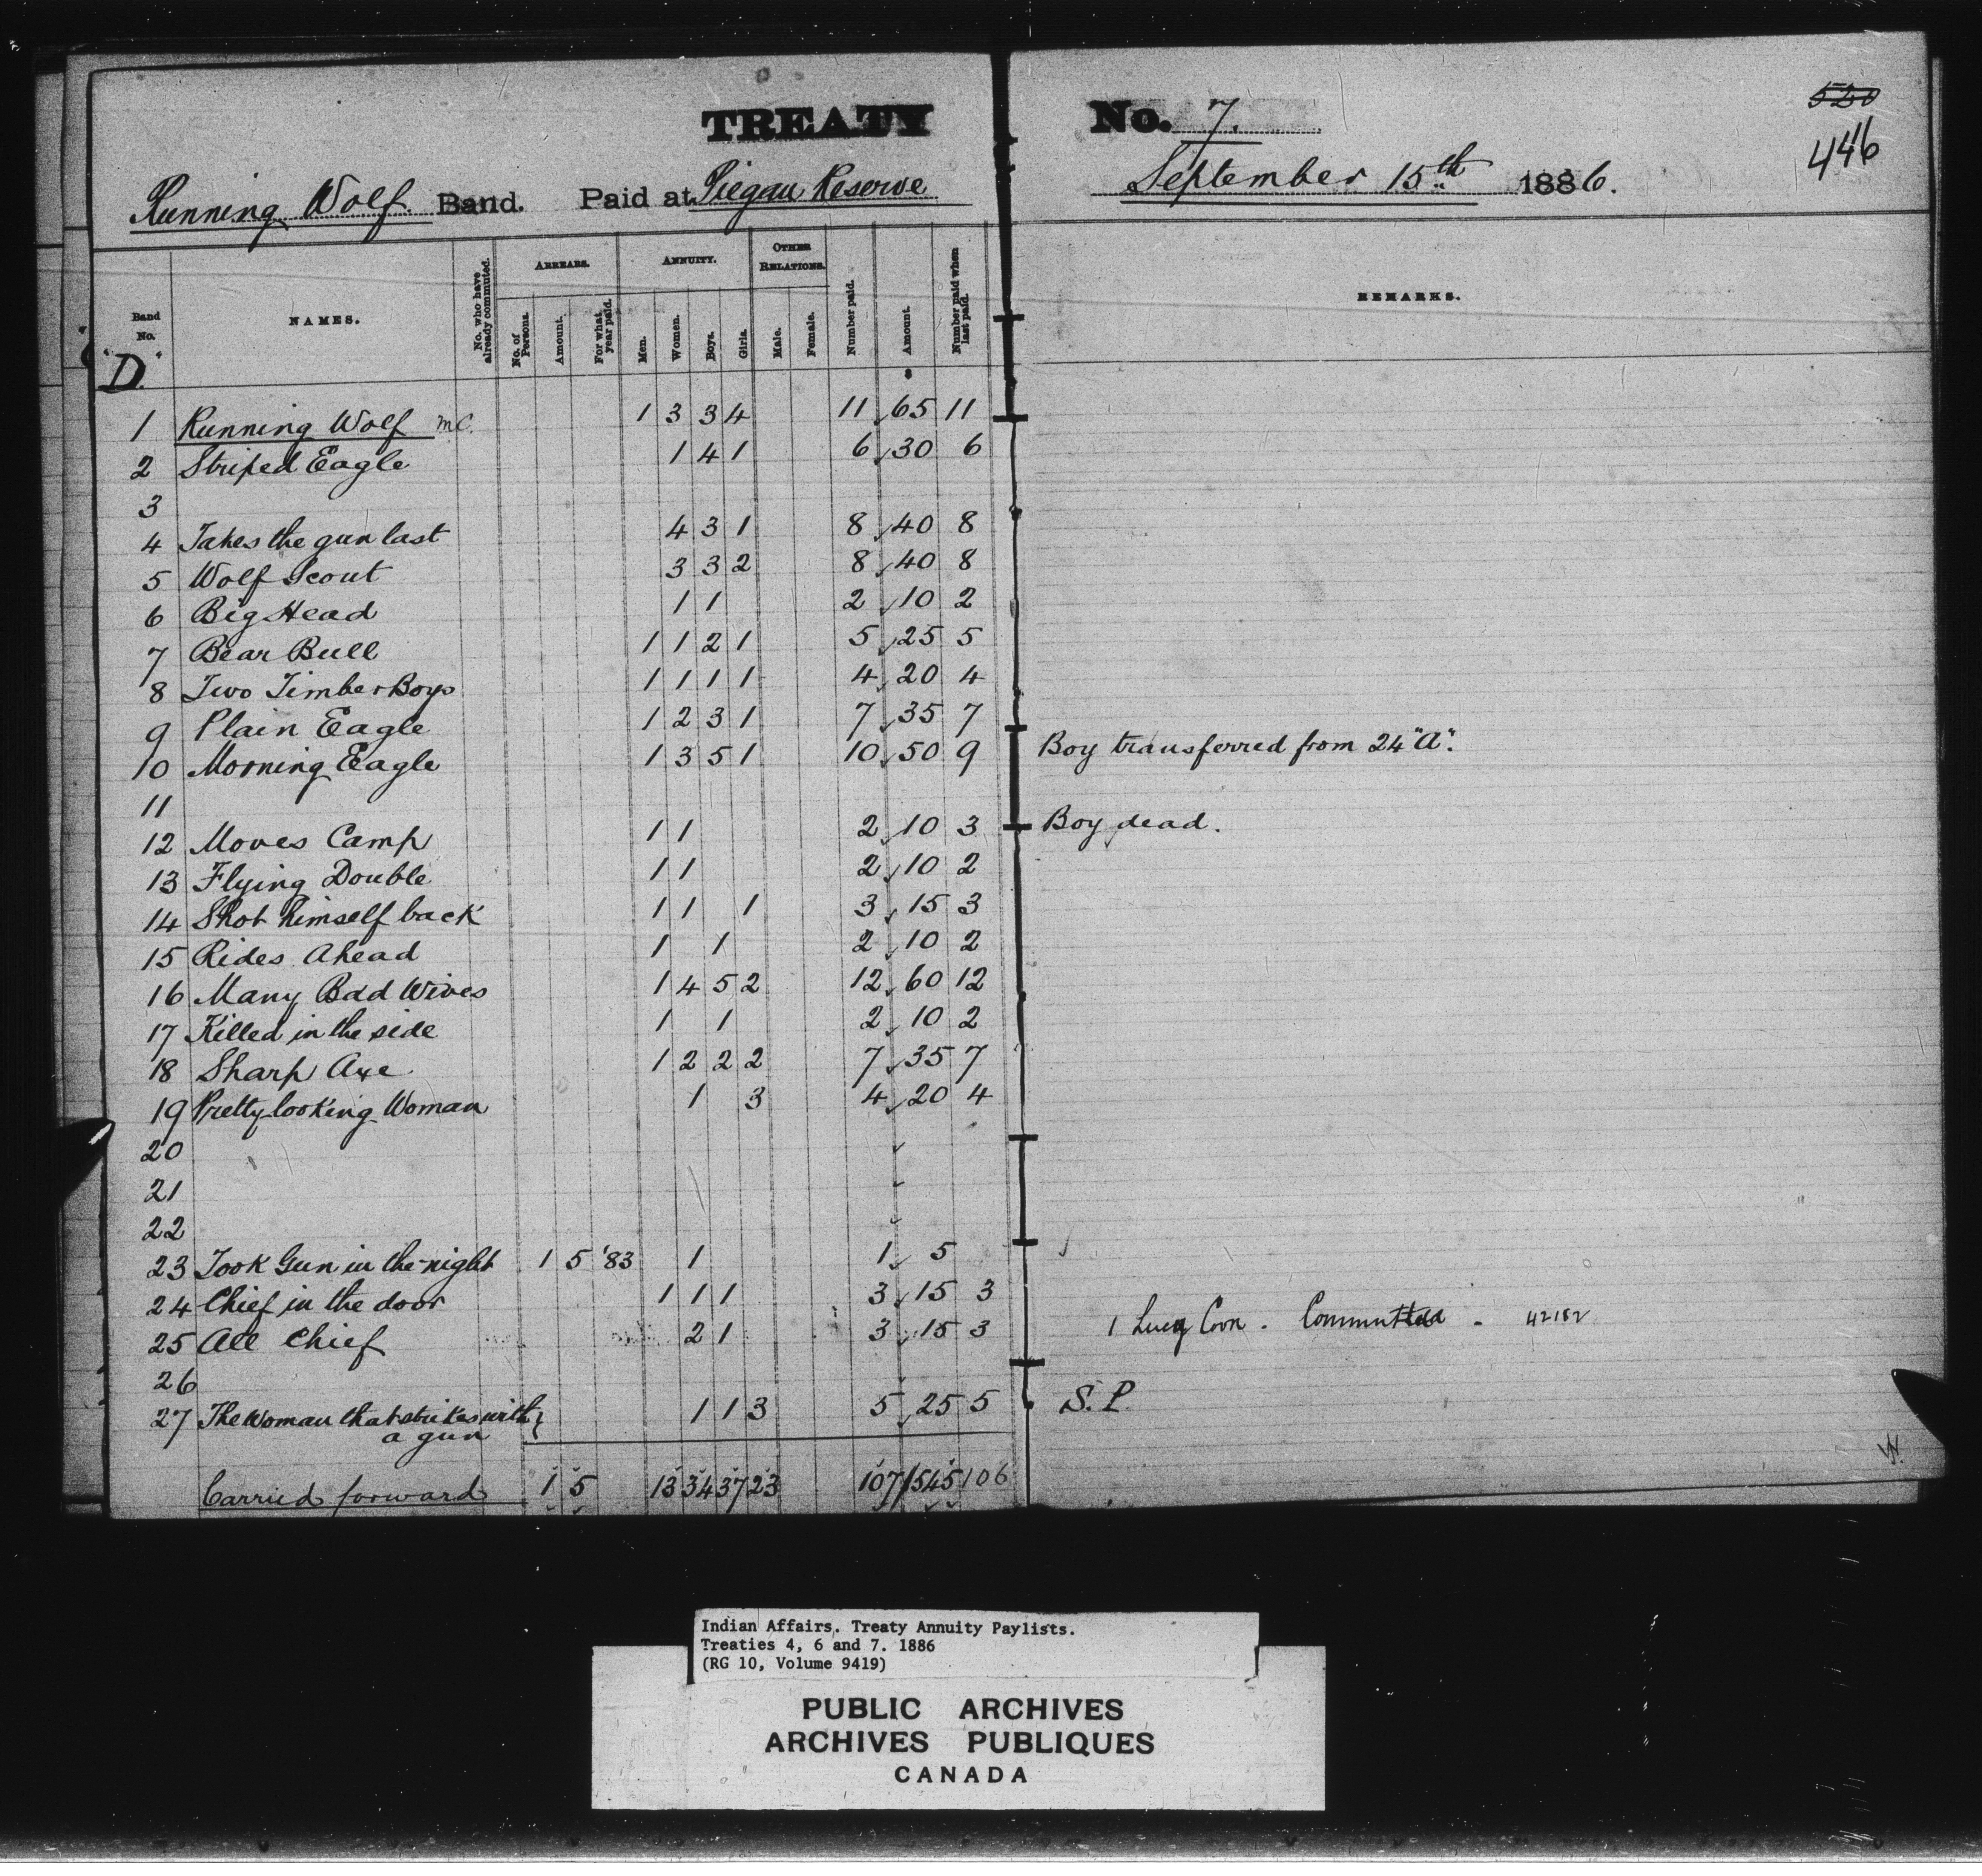 TREATY No. 7.
520
446
Running Wolf Band. Paid at Piegan Reserve September 15th 1886.
Band No.
NAMES.
No. who have already commuted.
ARREARS.
No. of Persons.
Amount.
For what year paid.
ANNUITY.
Men.
Women.
Boys.
Girls.
OTHER RELATIONS.
Male.
Female.
Number paid.
Amount.
Number paid when last paid.
REMARKS.
"D"
1 Running Wolf m.C. 1 3 3 4 11 65 11
2 Striped Eagle 1 4 1 6 30 6
3
4 Takes the gun last 4 3 1 8 40 8
5 Wolf Scout 3 3 2 8 40 8
6 Big Head 1 1 2 10 2
7 Bear Bull 1 1 2 1 5 25 5
8 Two Timber Boys 1 1 1 1 4 20 4
9 Plain Eagle 1 2 3 1 7 35 7
10 Morning Eagle 1 3 5 1 10 50 9 Boy transferred from 24 "A".
11
12 Moves Camp 1 1 2 10 3 Boy dead.
13 Flying Double 1 1 2 10 2
14 Shot himself back 1 1 1 3 15 3
15 Rides Ahead 1 1 2 10 2
16 Many Bad Wives 1 4 5 2 12 60 12
17 Killed in the side 1 1 2 10 2
18 Sharp Axe 1 2 2 2 7 35 7
19 Pretty looking Woman 1 3 4 20 4
20
21
22
23 Took Gun in the night 1 5 '83 1 1 5
24 Chief in the door 1 1 1 3 15 3
25 All Chief 2 1 3 15 3 1 Lucy Coon. Commuted - 42182
26
27 The Woman that strikes with a gun 1 1 3 5 25 5 S.P.
Carried forward 1 5 13 34 37 23 107 545 106
Indian Affairs. Treaty Annuity Paylists.
Treaties 4, 6 and 7. 1886
(RG 10, Volume 9419)
PUBLIC ARCHIVES
ARCHIVES PUBLIQUES
CANADA